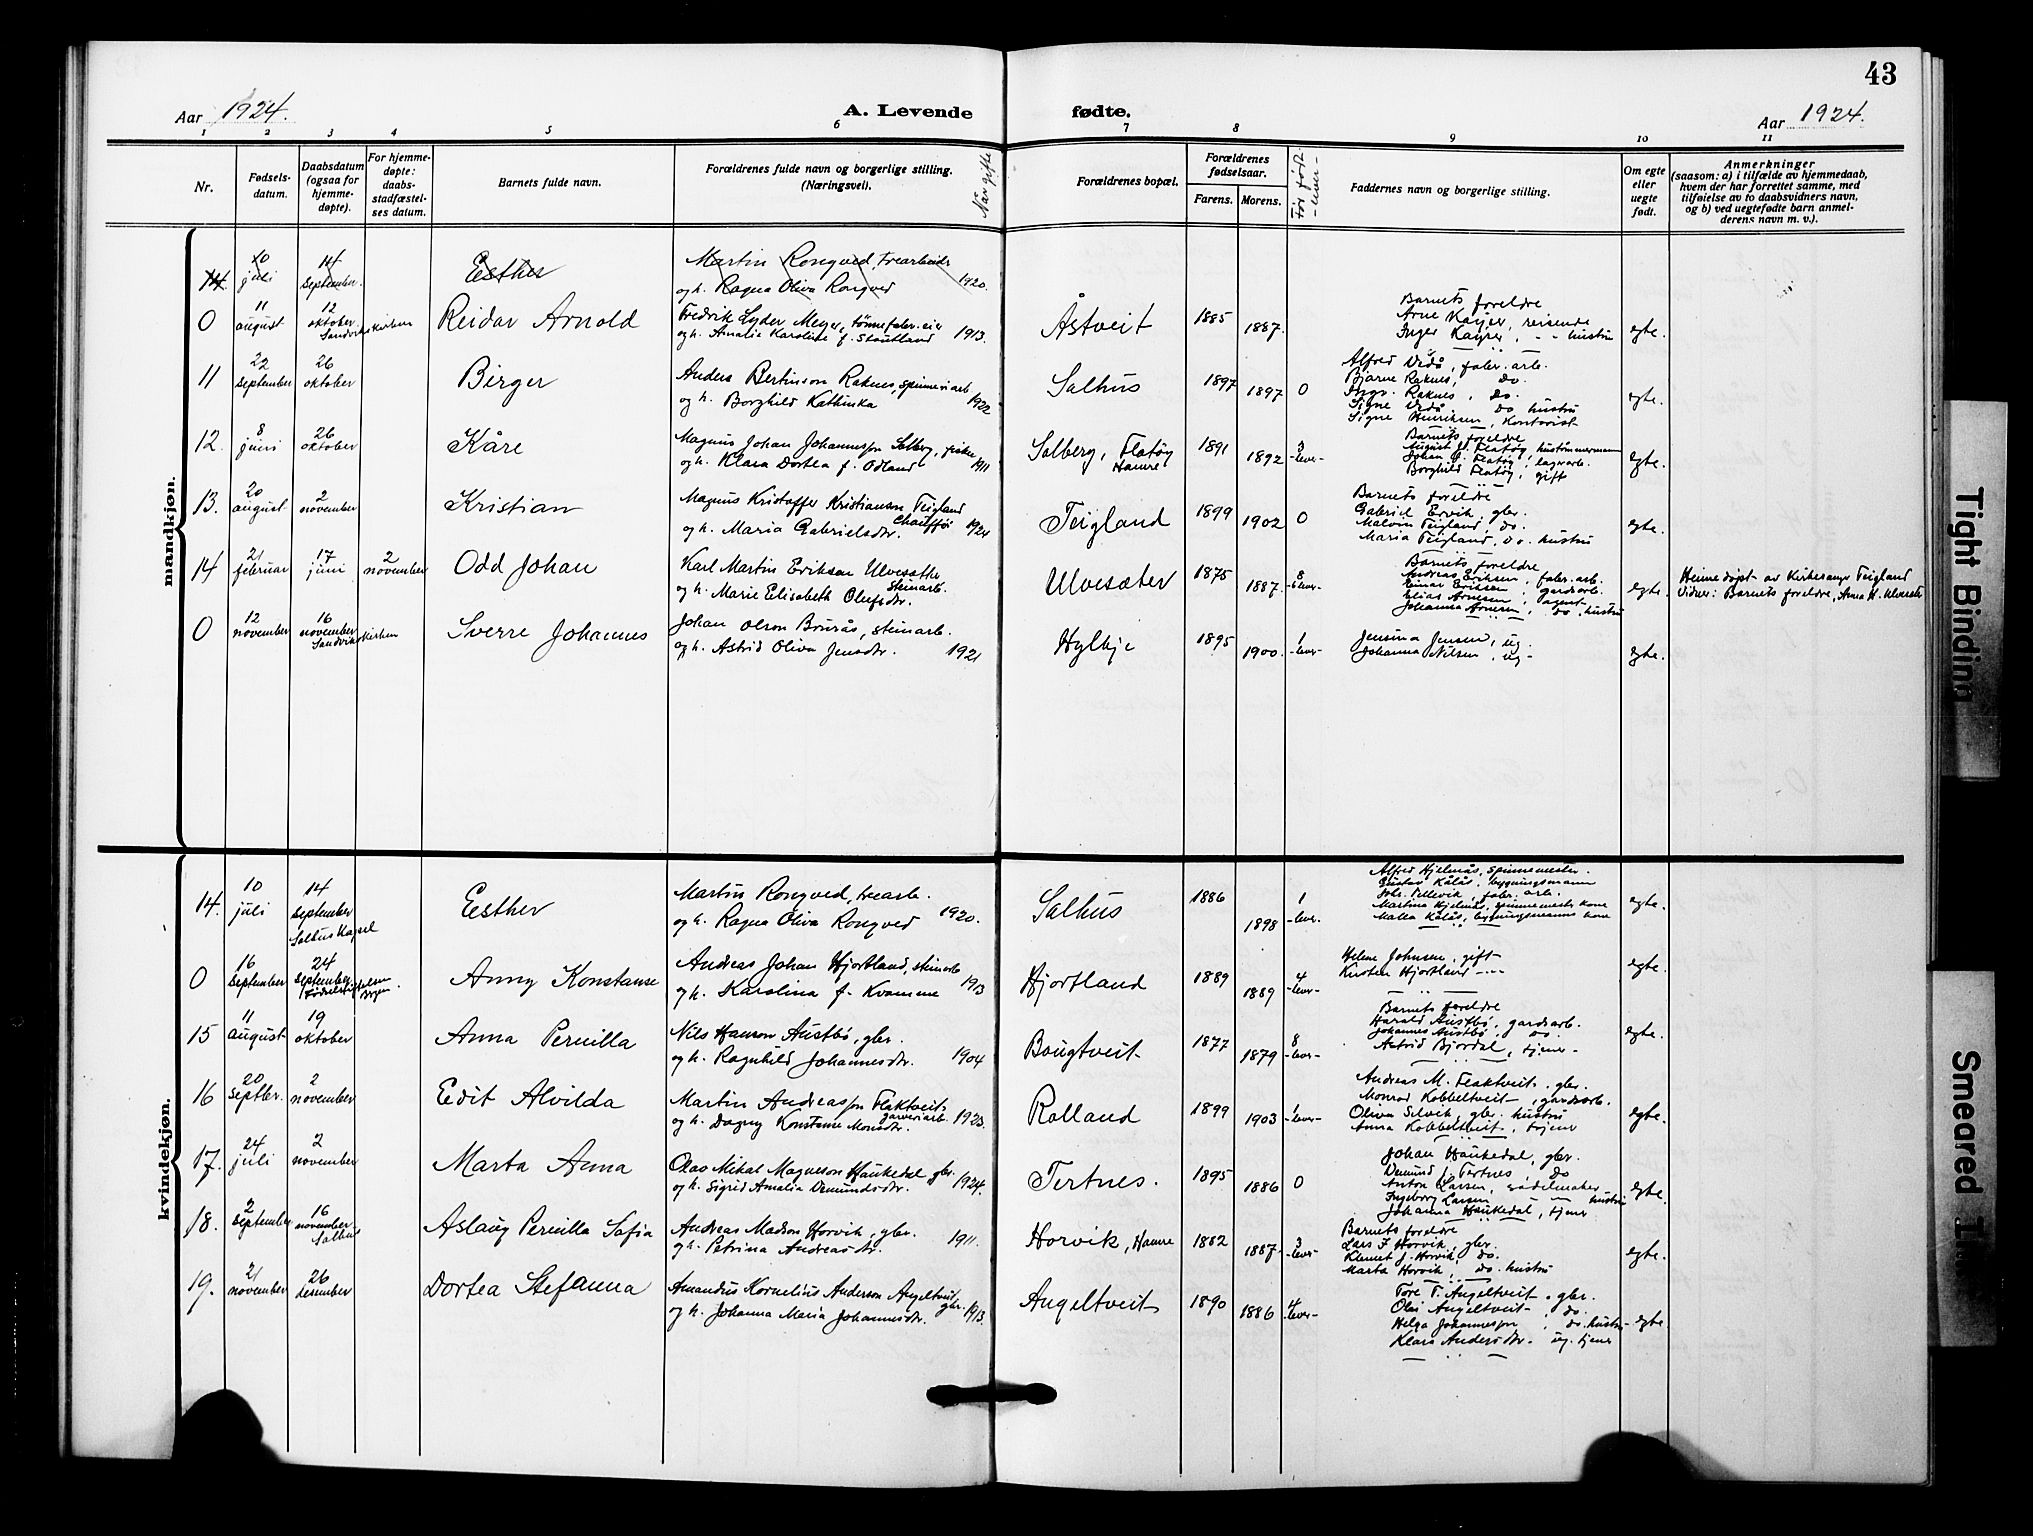 43
Aar 1924.
A. Levende fødte.
Aar 1924.
1 2 3 4 5 6 7 8 9 10 11
Nr.
Fødsels-
datum.
Daabsdatum
(ogsaa for
hjemme-
døpte).
For hjemme-
døpte:
daabs-
stadfæstel-
ses datum.
Barnets fulde navn.
Forældrenes fulde navn og borgerlige stilling.
(Næringsvei).
Når gifte
Forældrenes bopæl.
Forældrenes
fødselsaar.
Farens. Morens.
Faddernes navn og borgerlige stilling.
Om egte
eller
uegte
født.
Anmerkninger
(saasom: a) i tilfælde av hjemmedaab,
hvem der har forrettet samme, med
tilføielse av to daabsvidners navn,
og b) ved uegtefødte barn anmel-
derens navn m. v.).
mandkjøn.
14 10 juli 14 september. Esther
Martin Rongved, trearbeider
og h. Ragna Oliva Rongved 1920.
0 11 august 12 oktober Sandvikskirken Reidar Arnold
Fredrik Lyder Meyer, tønnefabr. eier
og h. Amalia Karoline f. Stoutland 1913.
Åstveit 1885 1887.
Barnets foreldre
Arne Kayser, reisende
Inger Kayser, - - hustru
egte.
11 22 september 26 oktober Birger
Anders Bertinson Raknes, spinneriarb
og h. Borghild Kathinka 1922
Salhus 1897 1897 0
Alfred Vedå, fabr. arb.
Bjarne Raknes, do.
Ingv. Raknes, do.
Signe Vedå do hustru
Signe Henriksen, kontorist
egte.
12. 8 juni 26 oktober Kåre
Magnus Johan Johannessen Solberg, fisker
og h. Klara Dortea f. Odland 1911
Solberg, Flatøy
Hamre
1891 1892 3 -lever-
Barnets foreldre
August J. Flatøy, hustømmermann
Johan J. Flatøy, lagerarb.
Borghild Flatøy, gift
egte.
13. 20 august 2 november Kristian
Magnus Kristoffer Kristiansen Teigland
Chauffør
og h. Maria Gabrielsdtr. 1924
Teigland 1899 1902 0
Barnets foreldre
Gabriel Ervik, gbr.
Malvin Teigland, do.
Maria Teigland, do. hustru
egte.
14 21 februar 17 juni 2 november Odd Johan
Karl Martin Eriksen Ulvesæther
Steinarb.
og h. Marie Elisabeth Olufsdtr.
Ulvesæter 1875 1887. 8
Barnets foreldre
Andreas Eriksen, fabr. arb.
Einar Eriksen, gardsarb.
Elias Arnesen, agent
Johanna Arnesen, do. hustru
egte.
Heimedøpt av Kirkesanger Teigland
Vidner: Barnets foreldre,
0 12 november 16 november Sandvikskirken Sverre Johannes
Johan Olson Brurås, steinarb.
og h. Astrid Oliva Jensdtr. 1921
Hylkje 1895 1900. 1 -lever-
Jensina Jensen, ug.
Johanna Nilsen, ug-
egte.
kvindekjøn.
14. 10 juli 14 september Salhus Kapel Esther
Martin Rongved, trearb.
og h. Ragna Oliva Rongved 1920.
Salhus 1886 1898 1 -lever.
Alfred Hjelmås, spinnemester.
Gustav Kålås, bygningsmann
Joh. Tellevik, fabr. arb.
Martina Hjelmås, spinnemesters kone
Malla Kålås, bygningsmanns kone
egte.
0 16 september 24 september Fødselsstiftelsen Bergen. Anny Konstanse
Andreas Johan Hjortland, steinarb
og h. Karolina f. Kvamme 1913
Hjortland 1889 1889 4 -lever-
Helene Johnsen, gift
Kirsten Hjortland - - -
egte.
15 11 august 19 oktober Anna Pernilla
Nils Hanson Austbø, gbr.
og h. Ragnhild Johannesdtr. 1904
Bougtveit 1877 1879 8 -lever-
Barnets foreldre
Harald Austbø, gardsarb.
Johannes Austbø, do
Astrid Bjordal, tjener-
egte.
16 20 septbr. 2 november Edit Alvilda
Martin Andreassen Flaktveit,
garveriarb.
og h. Dagny Konstanse Monsdtr. 1923.
Rolland 1899 1903 1 -lever-
Andreas M. Flaktveit, gbr.
Monrad Kobbeltveit, gardsarb.
Oliva Selvik, gbr. hustru
Anna Kobbeltveit, tjener
egte.
17. 24 juli 2 november Marta Anna
Olav Mikal Magneson Haukedal gbr.
og h. Sigrid Amalia Demundsdtr. 1924.
Tertnes. 1895 1886 0
Johan Haukedal, gbr.
Demund J. Tertnes do
Anton Larsen, sadelmaker
Ingeborg Larsen - - hustru
Johanna Haukedal, tjener.
egte.
18. 2 september 16 november. Salhus Aslaug Pernilla Sofia
Andreas Madson Horvik, gbr.
og h. Petrina Andreasdtr. 1911.
Horvik, Hamre 1882 1887. 3 -lever-
Barnets foreldre
Lars J Horvik, gbr.
Klemet J. Horvik, do.
Marta Horvik, do. hustru
egte.
19. 21 november 26 desember Dortea Stefanna
Amandus Kornelius Anderson Angeltveit,
gbr.
og h. Johanna Maria Johannesdtr. 1913.
Angeltveit 1890 1886 4 -lever-
Tore T. Angeltveit, gbr.
Olai Angeltveit do.
Helga Johannessen, do. hustru
Klara Andersdtr. ug. tjener
egte.
Tight Binding
Smeared